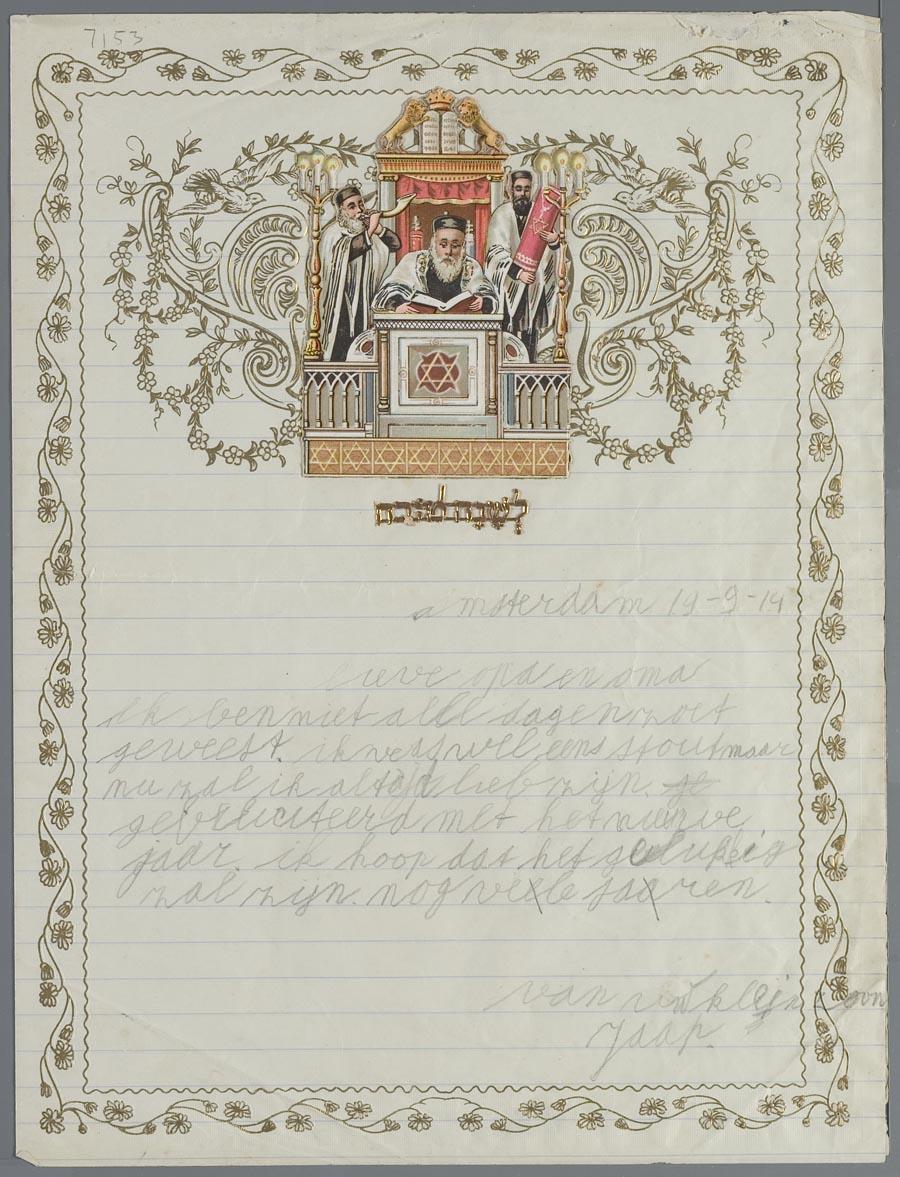 7153
לשנה טובה
amsterdam 19-9-14
lieve opa en oma
ik ben niet alle dagen zoet
geweest. ik was wel eens stout maar
nu zal ik altijd lief zijn.
gefeliciteerd met het nieuwe
jaar. ik hoop dat het gelukkig
zal zijn. nog veele jaaren.
van kleinzoon
Jaap.